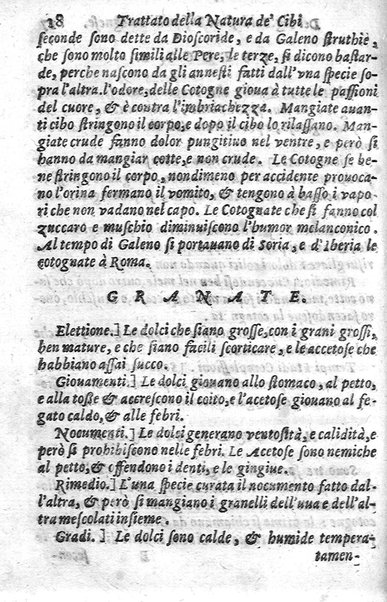 18 Trattato della Natura de' Cibi
seconde sono dette da Dioscoride, e da Galeno struthie,
che sono molto simili alle Pere, le terze, si dicono bastar-
de, perche nascono da gli annesti fatti dall'vna specie so-
pra l'altra. l'odore, delle Cotogne gioua à tutte le passioni
del cuore, & è contra l'imbriachezza. Mangiate auan-
ti cibo stringono il corpo, e dopo il cibo lo rilassano. Man-
giate crude fanno dolor pungitiuo nel ventre, e però si
hanno da mangiar cotte, e non crude. Le Cotogne se be-
ne stringono il corpo, nondimeno per accidente prouoca-
no l'orina fermano il vomito, & tengono à basso i vapo-
ri che non vadano nel capo. Le Cotognate che si fanno col
zuccaro e muschio diminuiscono l'humor melanconico.
Al tempo di Galeno si portauano di Soria, e d'Iberia le
cotognate à Roma.
GRANATE.
Elettione.] Le dolci che siano grosse, con i grani grossi,
ben mature, e che siano facili scorticare, e le accetose che
habbiano assai succo.
Giouamenti.] Le dolci giouano allo stomaco, al petto,
e alla tosse & accrescono il coito, e l'acetose giouano al fe-
gato caldo, & alle febri.
Nocumenti.] Le dolci generano ventosità, e calidità, e
però si prohibiscono nelle febri. Le Acetose sono nemiche
al petto, & offendono i denti, e le gingiue.
Rimedio.] L'una specie curata il nocumento fatto dal-
l'altra, & però si mangiano i granelli dell'una e dell'al-
tra mescolati insieme.
Gradi.] Le dolci sono calde, & humide tempera-
tamen-